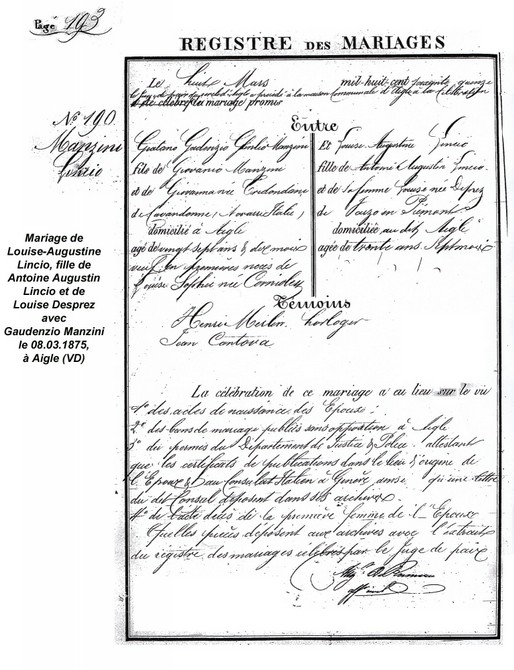 Page 193
REGISTRE DES MARIAGES
Le huit Mars mil huit cent septante quinze
le juge de paix du cercle d'Aigle a procédé à la maison communale d'Aigle à la célébration
du mariage promis
Entre
No 190.
Manzini
Lincio
Gaudenzio Giulio Manzini
fils de Giovanni Manzini
et de Giovanna née
de Cavandonne, Novarre Italie,
domicilié à Aigle
agé de vingt sept ans & dix mois
veuf en premières noces de
Louise Sophie née
Et Louise Augustine Lincio
fille de Antoine Augustin Lincio
et de Louise née Deprez
de en Piémont
domiciliée au dit Aigle
agée de trente ans sept mois
Témoins
Henri Merlin. horloger
Jean Cantova
La célébration de ce mariage a eu lieu sur le vu
1° des actes de naissance des Epoux;
2° des bans de mariage publiés sans opposition à Aigle
3° du permis du Département de Justice & Police attestant
que les certificats de publications dans le lieu d'origine de
l'Epoux & au Consulat Italien à Genève ainsi qu'une lettre
du dit Consul déposent dans ses archives.
4° de l'acte décès de la première femme de l'Epoux
Quelles pièces déposent aux archives avec l'extrait
du régistre des mariages célébrés par le juge de paix
Mariage de
Louise-Augustine
Lincio, fille de
Antoine Augustin
Lincio et de
Louise Desprez
avec
Gaudenzio Manzini
le 08.03.1875,
à Aigle (VD)